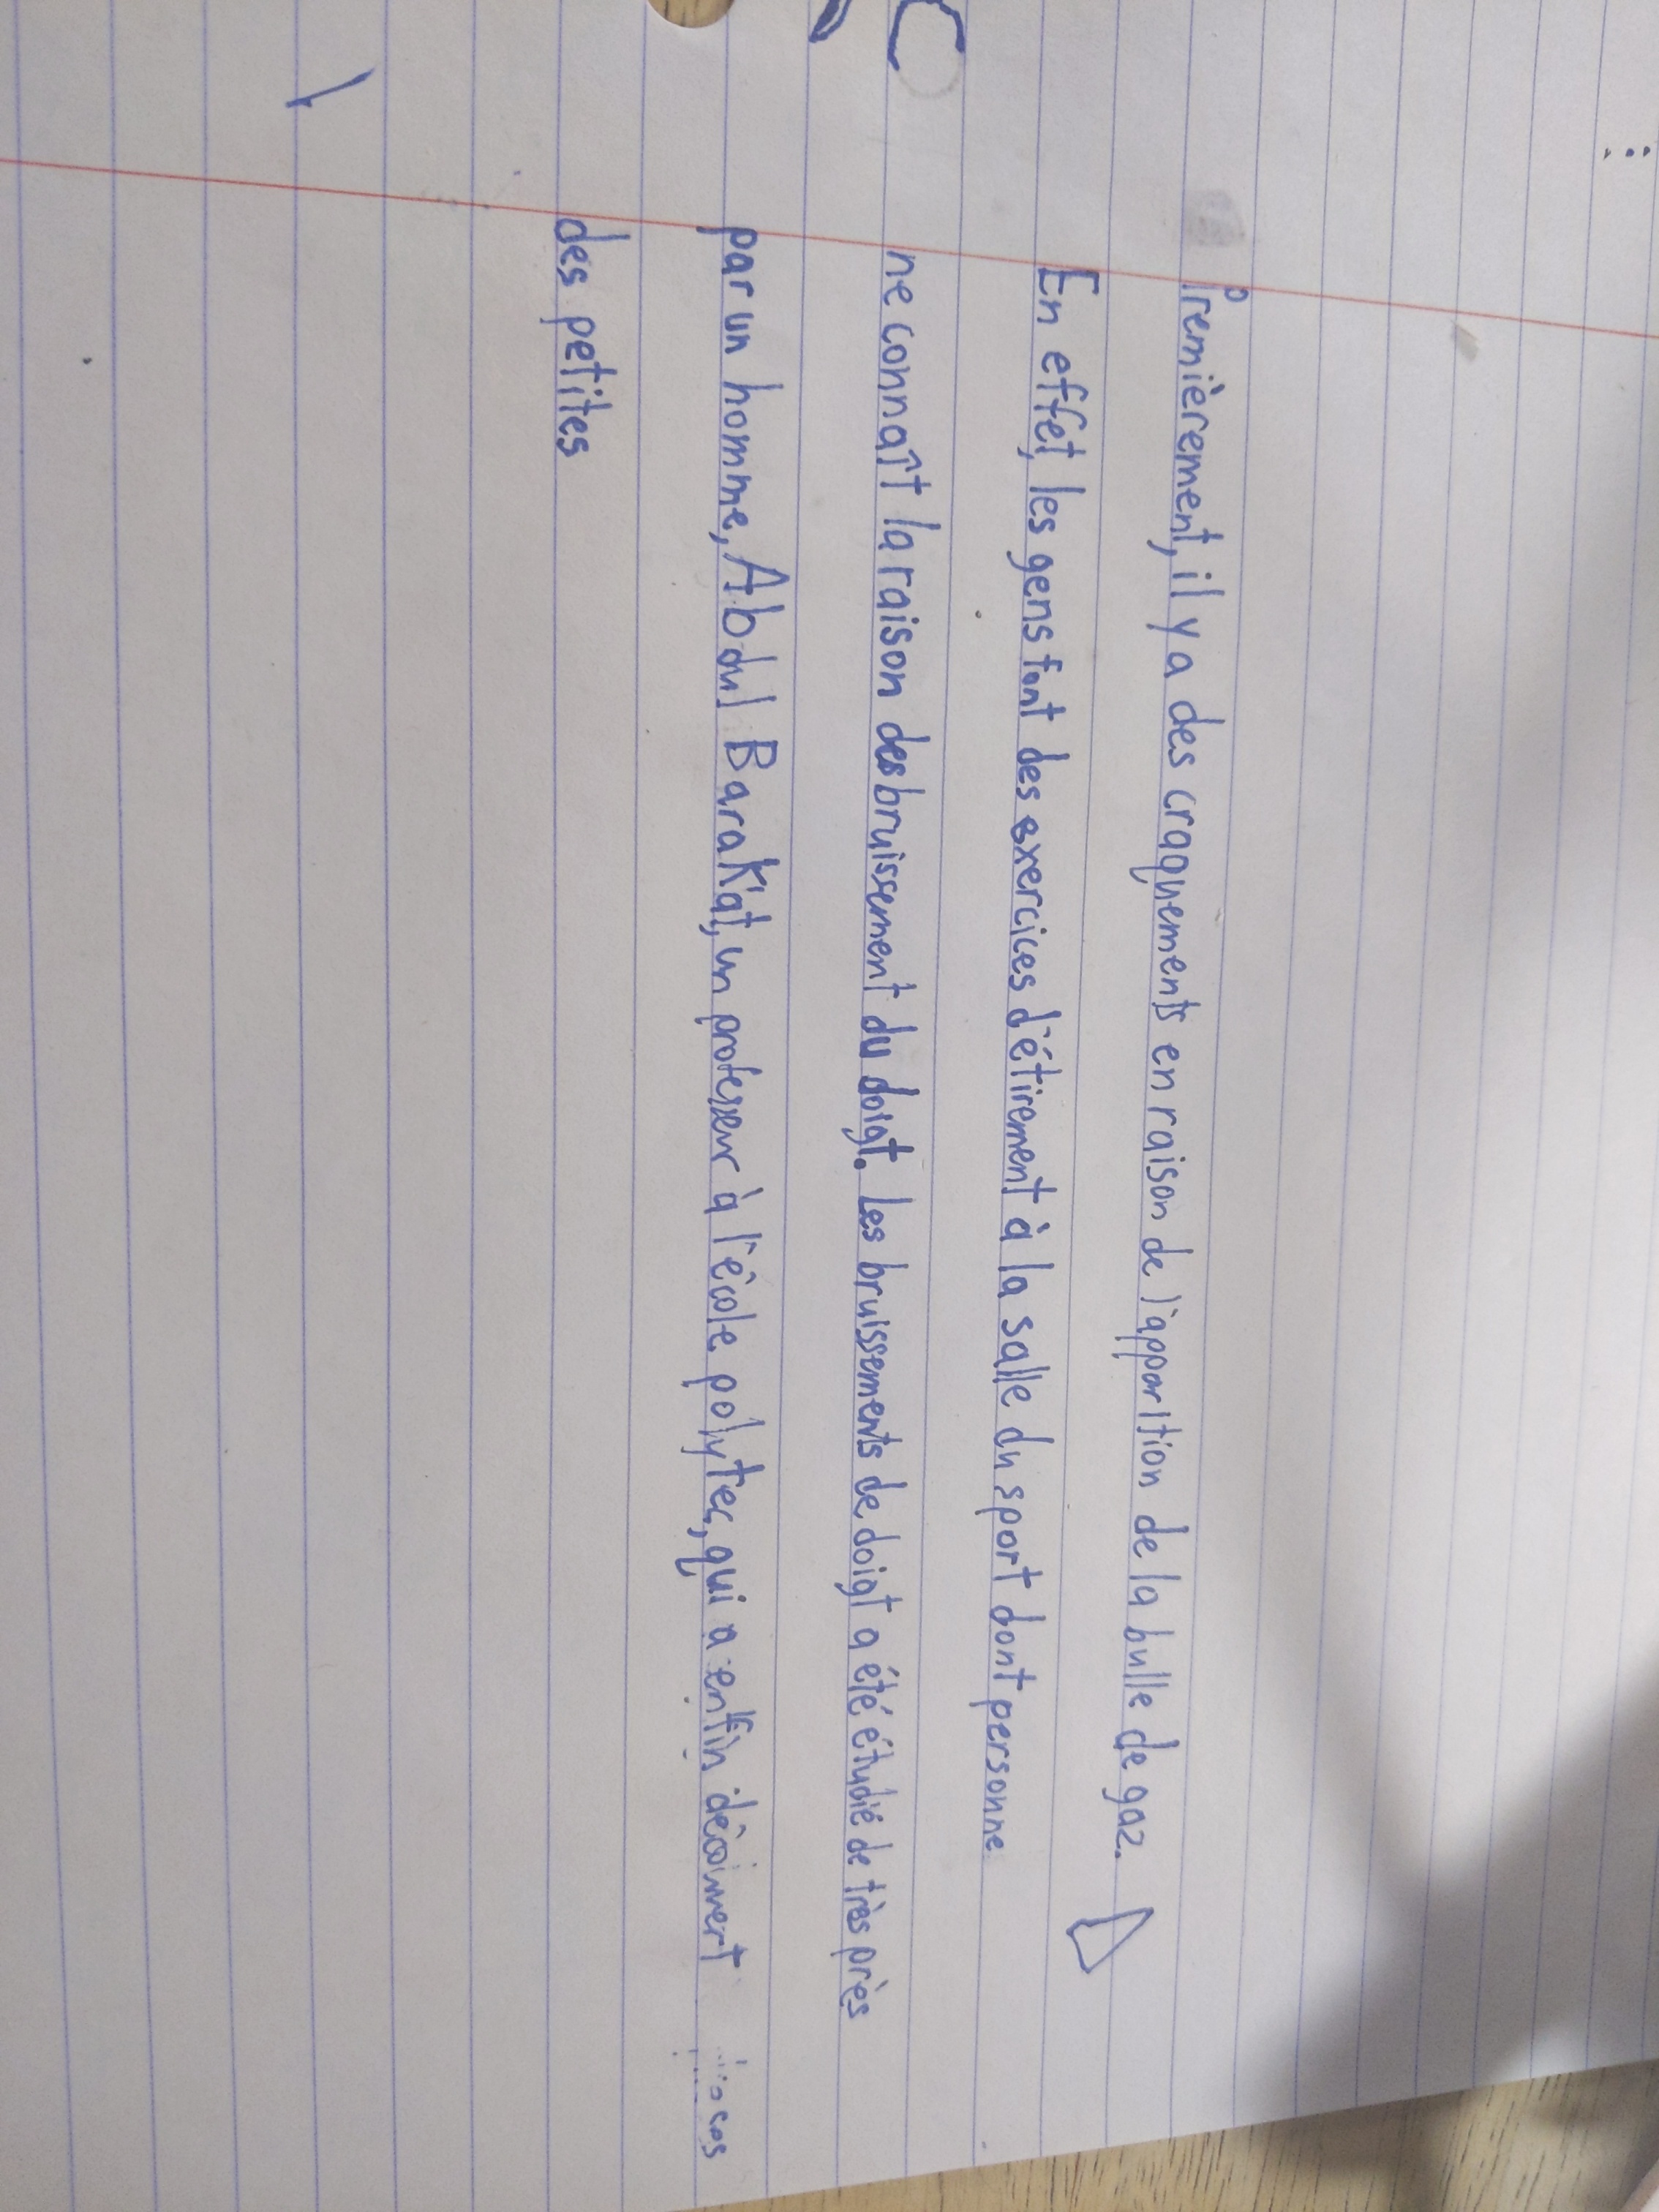 Premièrement, il y a des craquements en raison de l'apparition de la bulle de gaz.
En effet, les gens font des exercices d'étirement à la salle du sport dont personne
ne connaît la raison des bruissement du doigt. Les bruissements de doigt a été étudié de très près
par un homme, Abdul Barakat, un professeur à l'école polytec, qui a enfin découvert
des petites